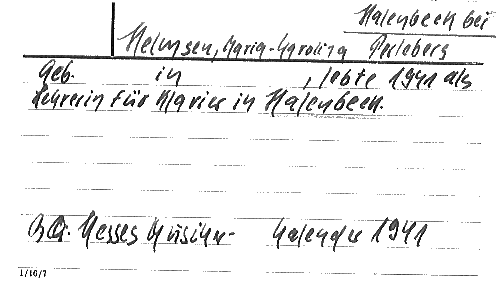 Halenbeck bei
Helmsen, Maria-Karolina Perleberg
Geb. in , lebte 1941 als
Lehrerin für Klavier in Halenbeck.
BQ. Hesses Musiker- Kalender 1941
1/10/7